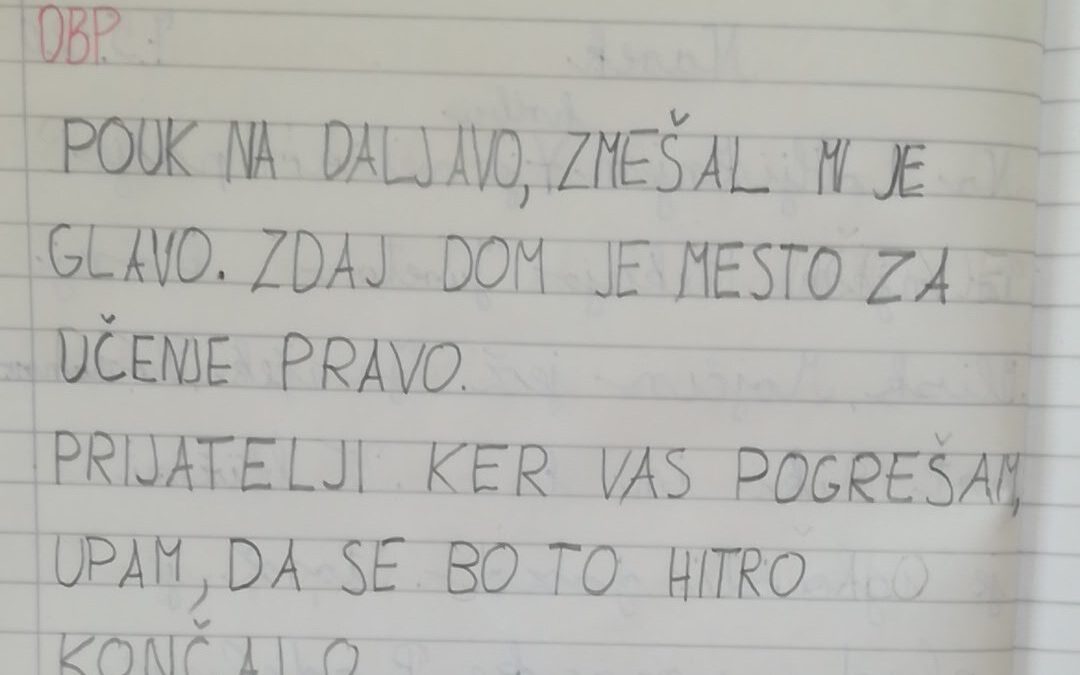 OBP.
POUK NA DALJAVO, ZMEŠAL MI JE
GLAVO. ZDAJ DOM JE MESTO ZA
UČENJE PRAVO.
PRIJATELJI KER VAS POGREŠAM,
UPAM, DA SE BO TO HITRO
KONČALO